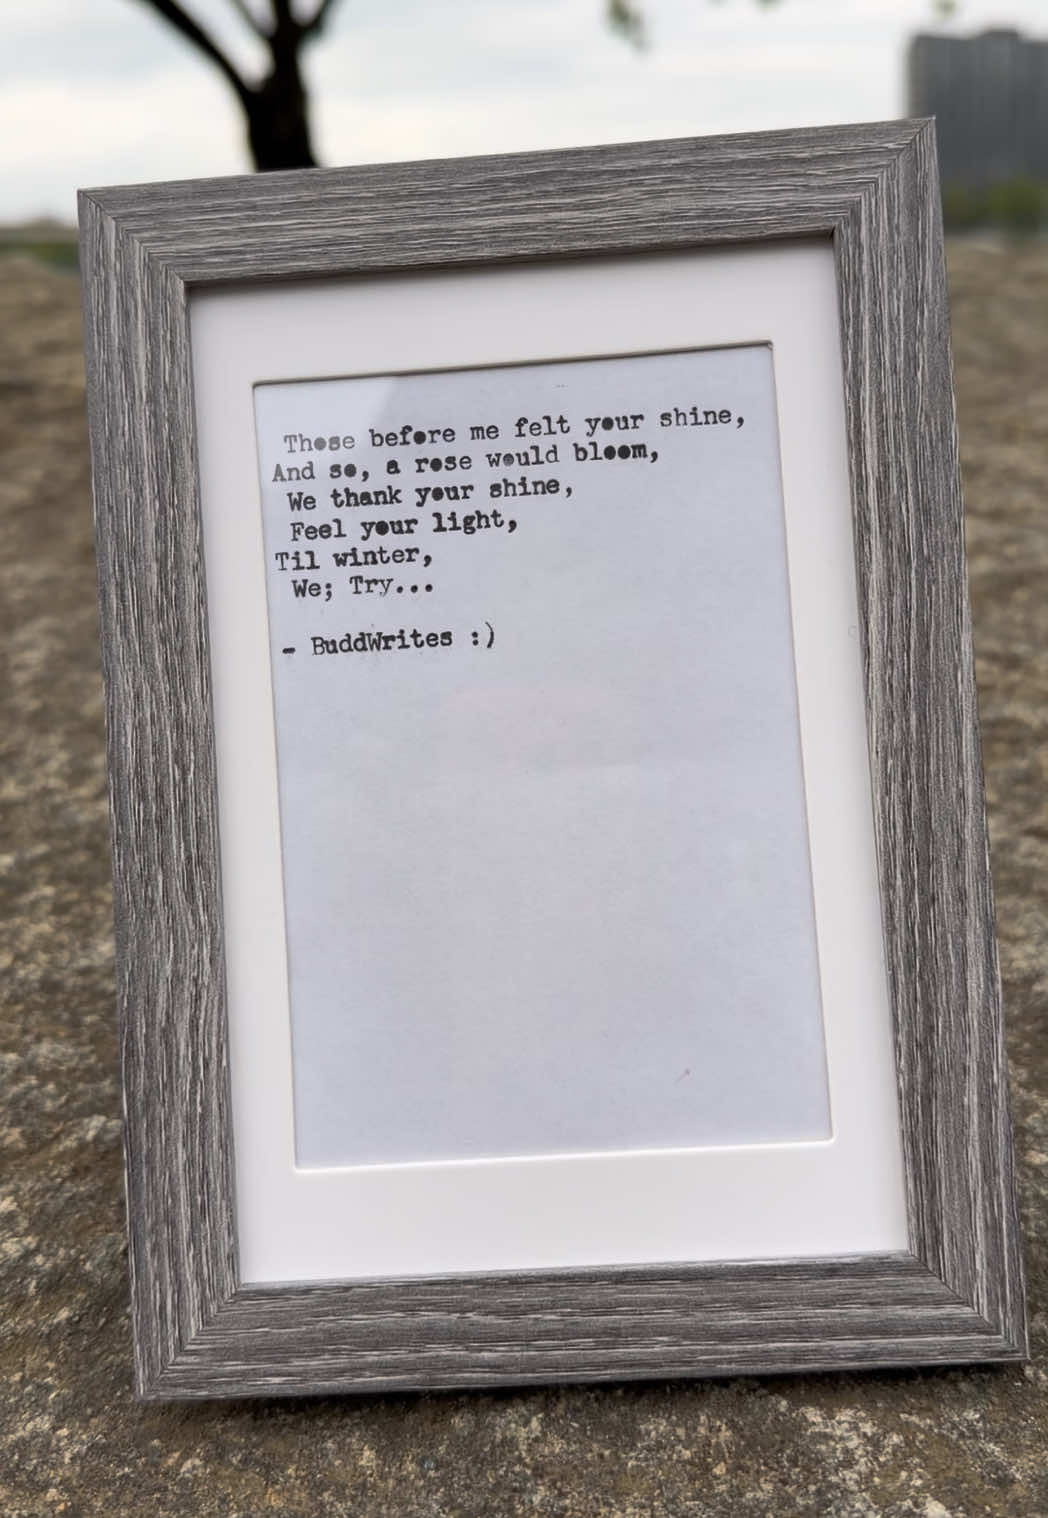 Those before me felt your shine,
And so, a rose would bloom,
We thank your shine,
Feel your light,
Til winter,
We; Try...
- BuddWrites :)